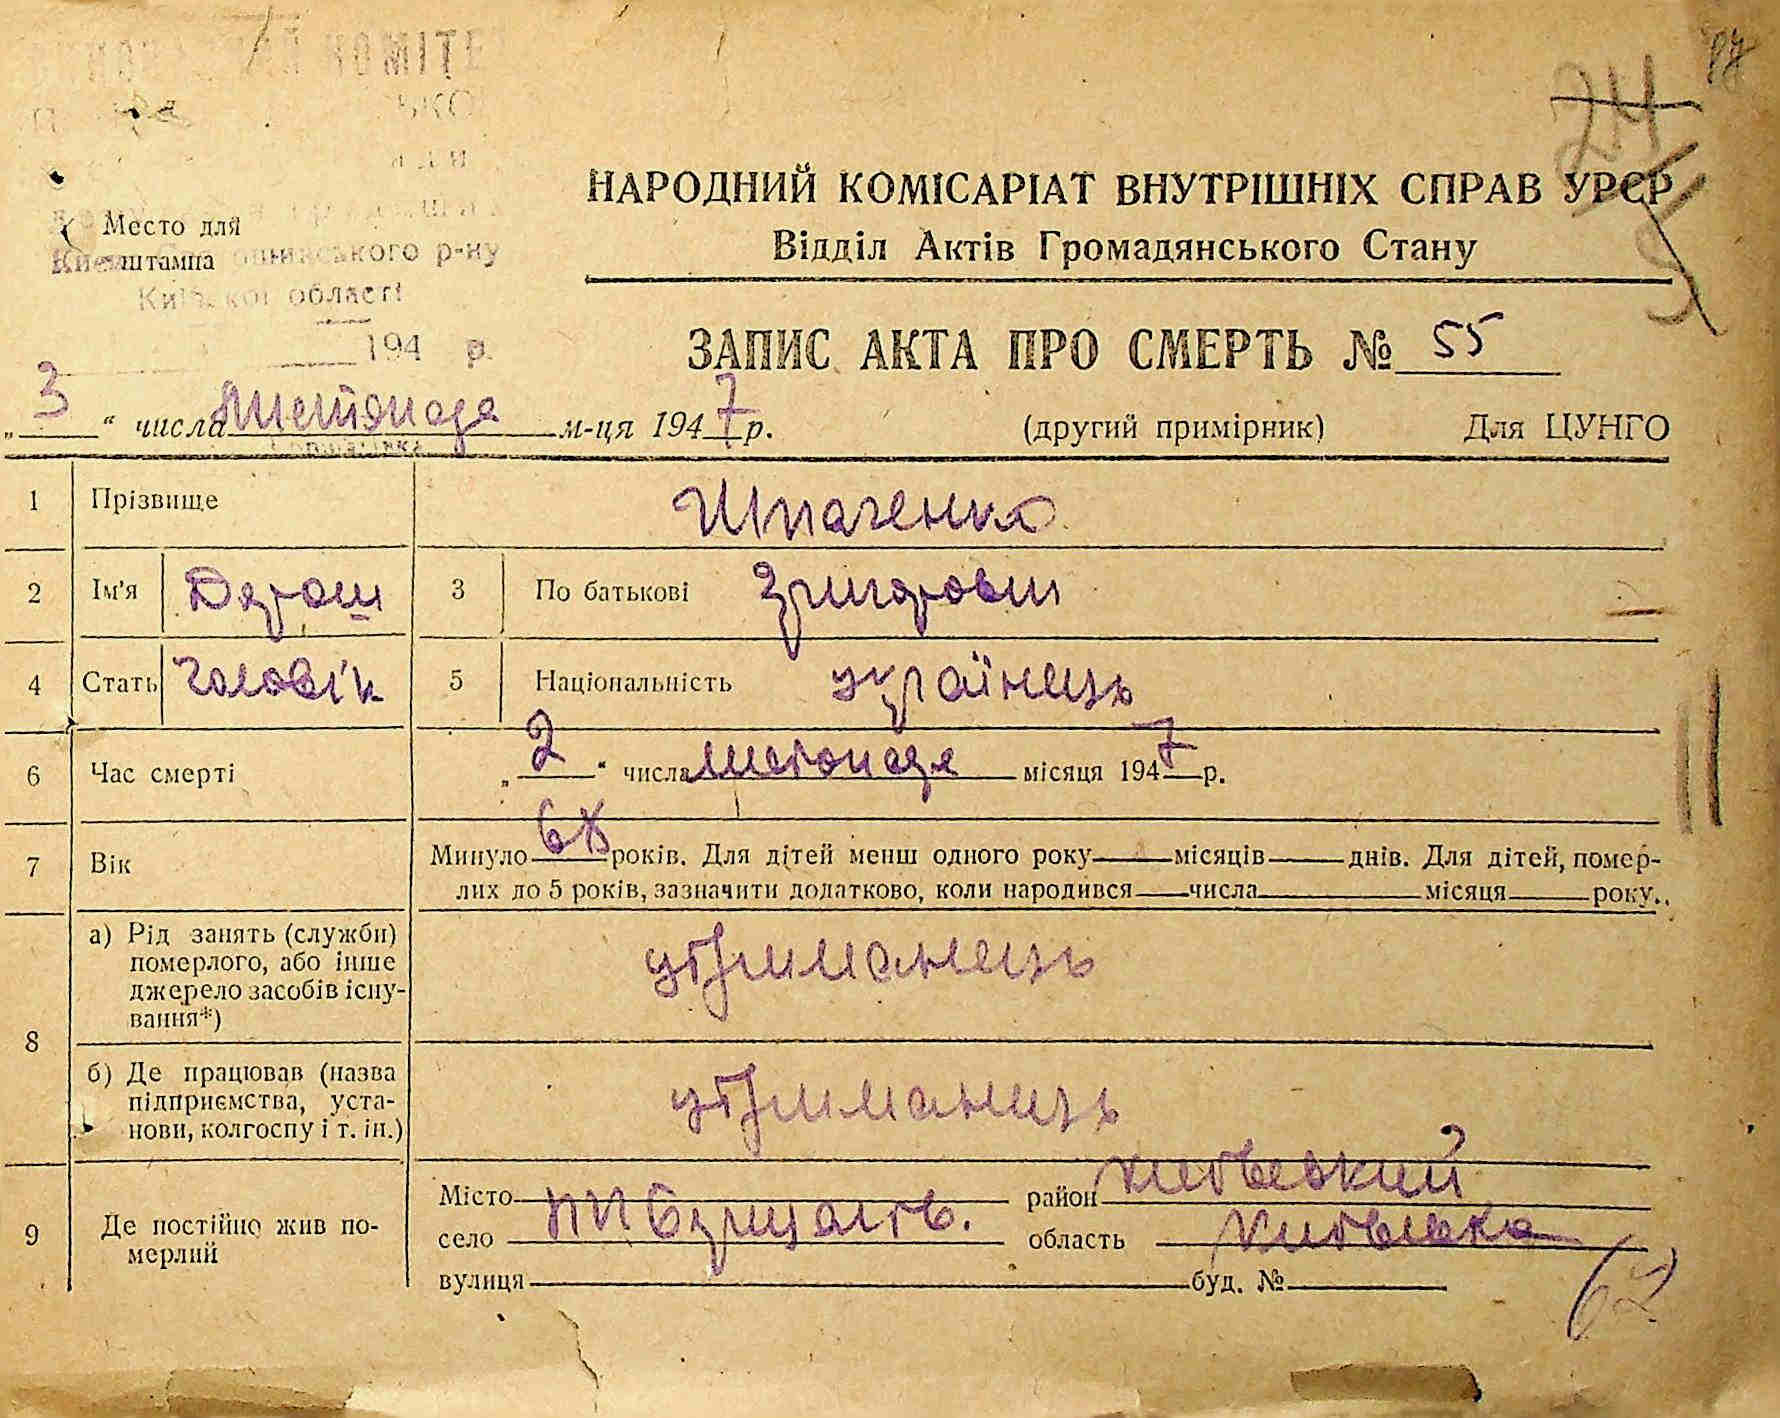 КОМІТЕ
ЬКО
НАРОДНИЙ КОМІСАРІАТ ВНУТРІШНІХ СПРАВ УРСР
Место для
штампа
р-ну
Відділ Актів Громадянського Стану
області
194 р.
ЗАПИС АКТА ПРО СМЕРТЬ № 55
„ 3 “ числа Листопада м-ця 1947 р. (другий примірник) Для ЦУНГО
1 Прізвище Шпаченко
2 Ім'я 3 По батькові Григорович
4 Стать Чоловік 5 Національність українець
6 Час смерті „ 2 “ числа листопада місяця 1947 р.
7 Вік Минуло 68 років. Для дітей менш одного року місяців днів. Для дітей, помер-
лих до 5 років, зазначити додатково, коли народився числа місяця року.
8 а) Рід занять (служби)
померлого, або інше
джерело засобів існу-
вання*)
утриманець
б) Де працював (назва
підприємства, уста-
нови, колгоспу і т. ін.)
утриманець
9 Де постійно жив по-
мерлий
Місто район
село область
вулиця буд. №
62